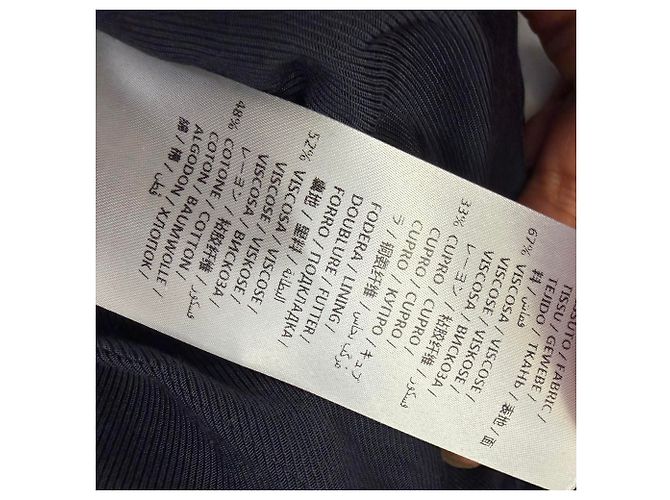 SUTO / FABRIC /
TISSU / GEWEBE /
TEJIDO / ТКАНЬ / 表地 / 面
料 / قماش
67% VISCOSA / VISCOSE /
VISCOSE / VISKOSE /
VISCOSA / ВИСКОЗА /
レーヨン / 粘胶纤维 / فسكوز
33% CUPRO / CUPRO /
CUPRO / CUPRO /
CUPRO / КУПРО / キュプ
ラ / 铜铵纤维 / مركب نحاس
FODERA / LINING /
DOUBLURE / FUTTER /
FORRO / ПОДКЛАДКА /
裏地 / 里料 / البطانة
52% VISCOSA / VISCOSE /
VISCOSE / VISKOSE /
VISCOSA / ВИСКОЗА /
レーヨン / 粘胶纤维 / فسكوز
48% COTONE / COTTON /
COTON / BAUMWOLLE /
ALGODON / ХЛОПОК /
綿 / 棉 / قطن